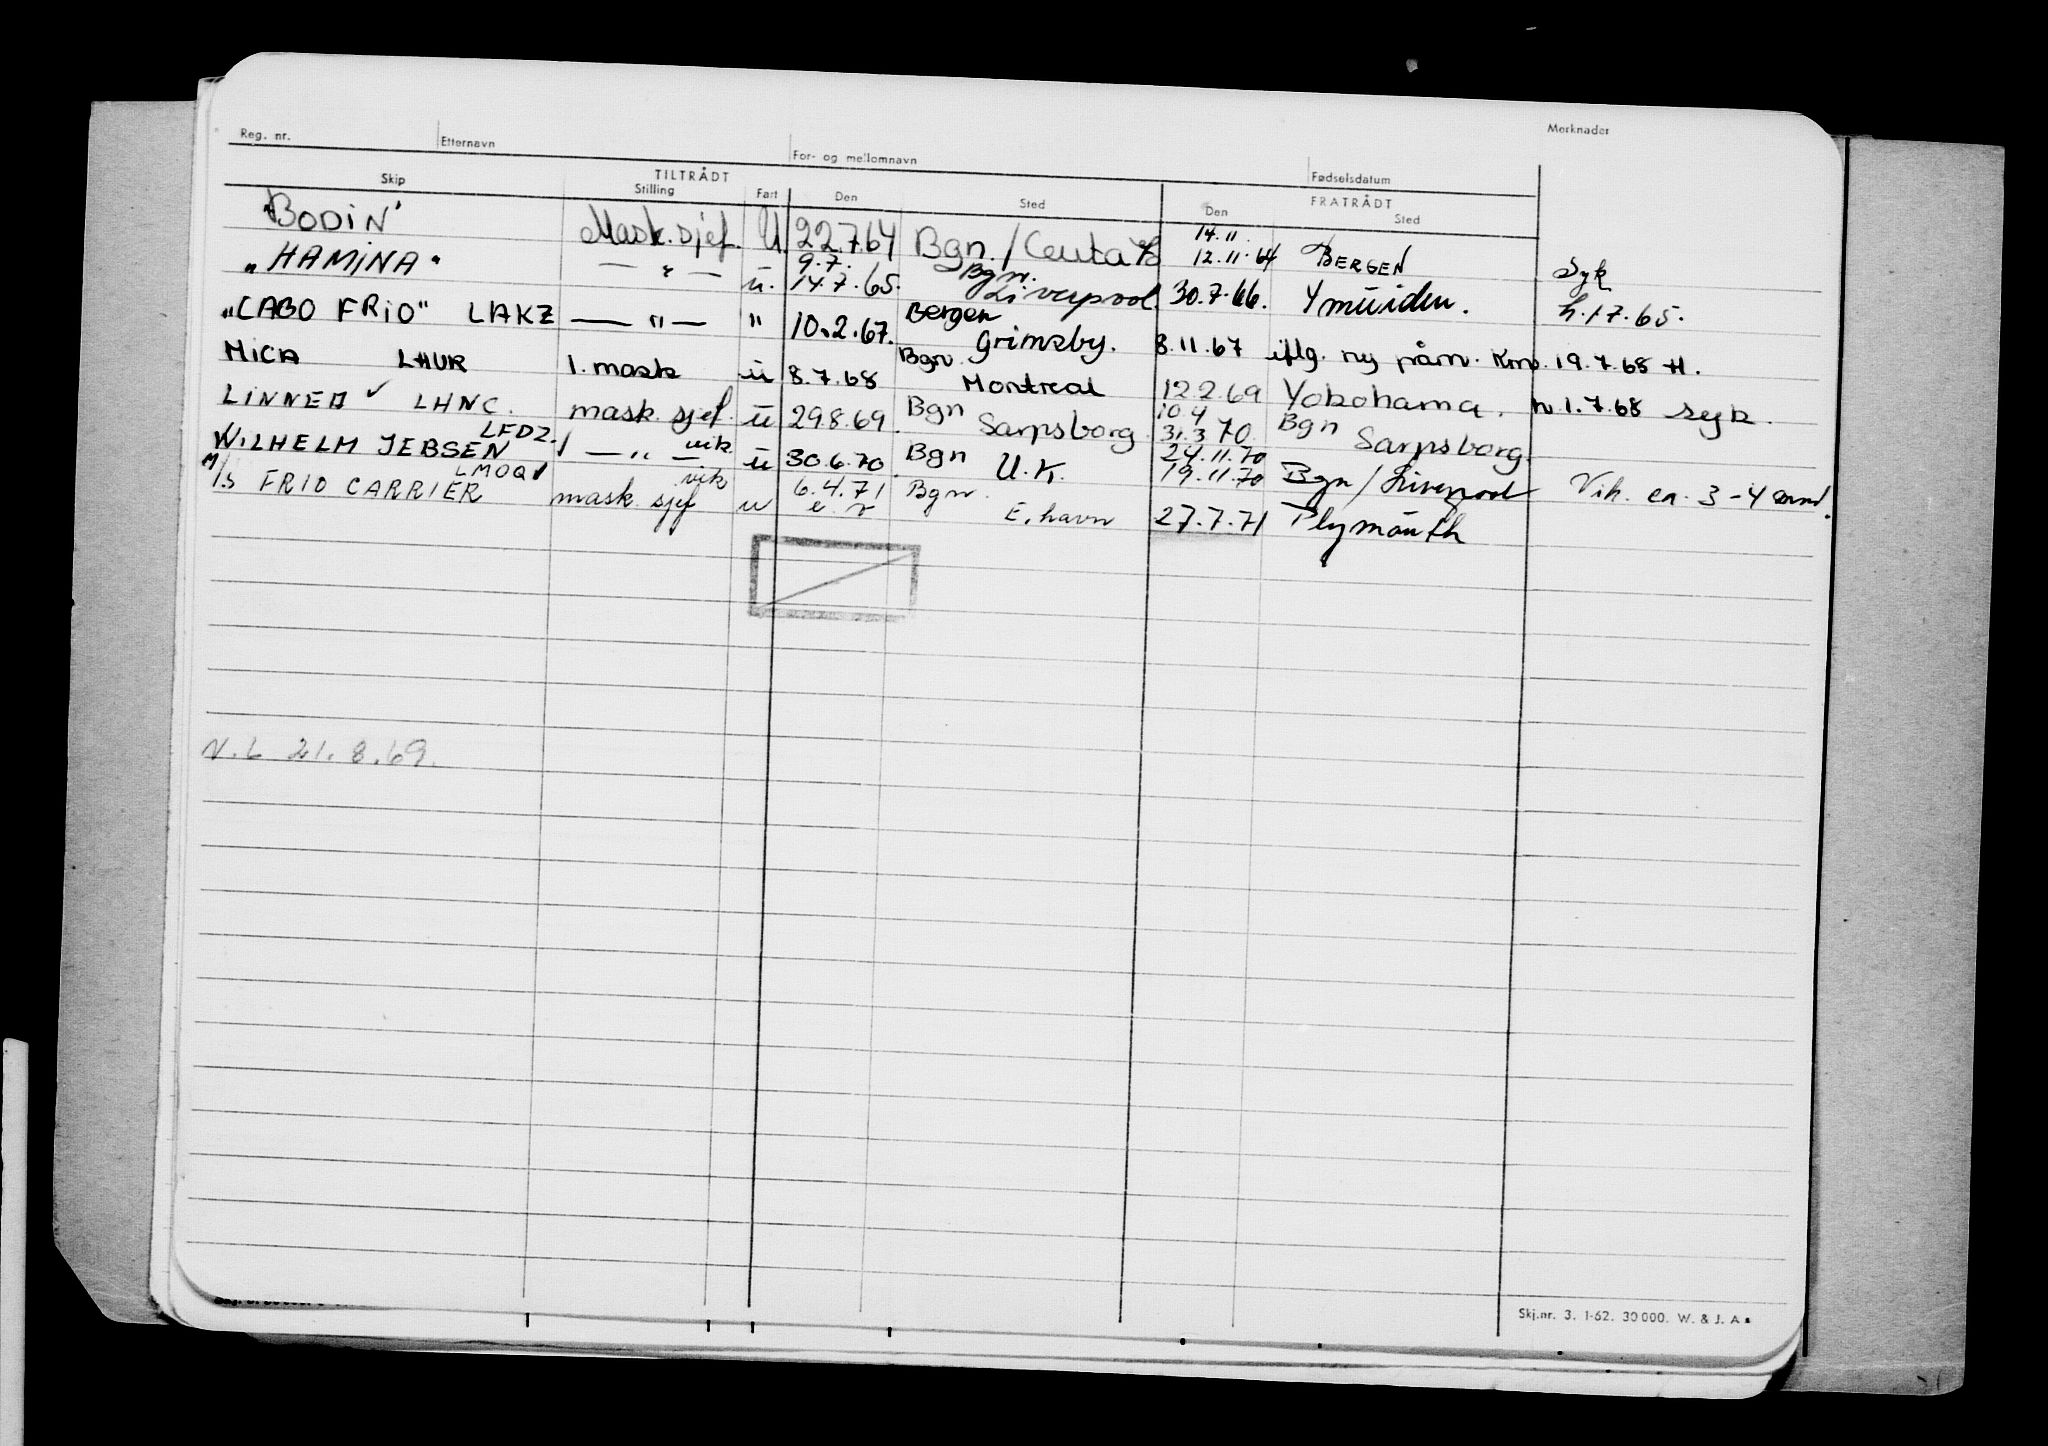 Reg. nr. Etternavn For- og mellomnavn Fødselsdatum Merknader
TILTRÅDT FRATRÅDT
Skip Stilling Fart Den Sted Den Sted
"BODIN" Mask.sjef. U 22.7.64 Bgn./Ceuta 14.11. 12.11.64 BERGEN Syk
"HAMINA" — " — u. 9.7. 14.7.65. Bgn. Liverpool 30.7.66. Ymuiden. h.1.7.65.
"CABO FRIO" LAKZ — " — " 10.2.67. Bergen Grimsby. 8.11.67 iflg. ny påm. Krm. 19.7.68 H.
MICA LHUR 1. mask u 8.7.68 Bgn. Montreal 12.2.69 Yokohama. h.1.7.68 syk.
LINNEA ✓ LHNC. mask. sjef. u 29.8.69. Bgn Sarpsborg 10.4 31.3.70. Bgn Sarpsborg.
WILHELM JEBSEN LFDZ. — " — vik. u 30.6.70. Bgn U.K. 24.11.70 19.11.70 Bgn/Liverpool Vik. ca. 3-4 mnd.
M/S FRIO CARRIER LMOQ mask. sjef vik u 6.4.71 Bgn. E.havn 27.7.71 Plymouth
V.L 21.8.69.
Skj.nr. 3. 1-62. 30000. W. & J. A